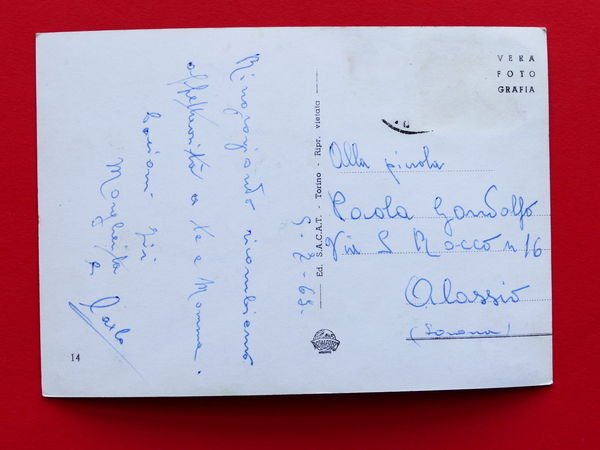 VERA
FOTO
GRAFIA
Alla piccola
Paola Gandolfo
Via S Rocco n 16
Alassio
(Savona)
5-2-65.
Ringraziando ricambiamo
affettuosità a te e Mamma.
Margherita
e Carlo
Ed. S.A.C.A.T. - Torino - Ripr. vietata
14